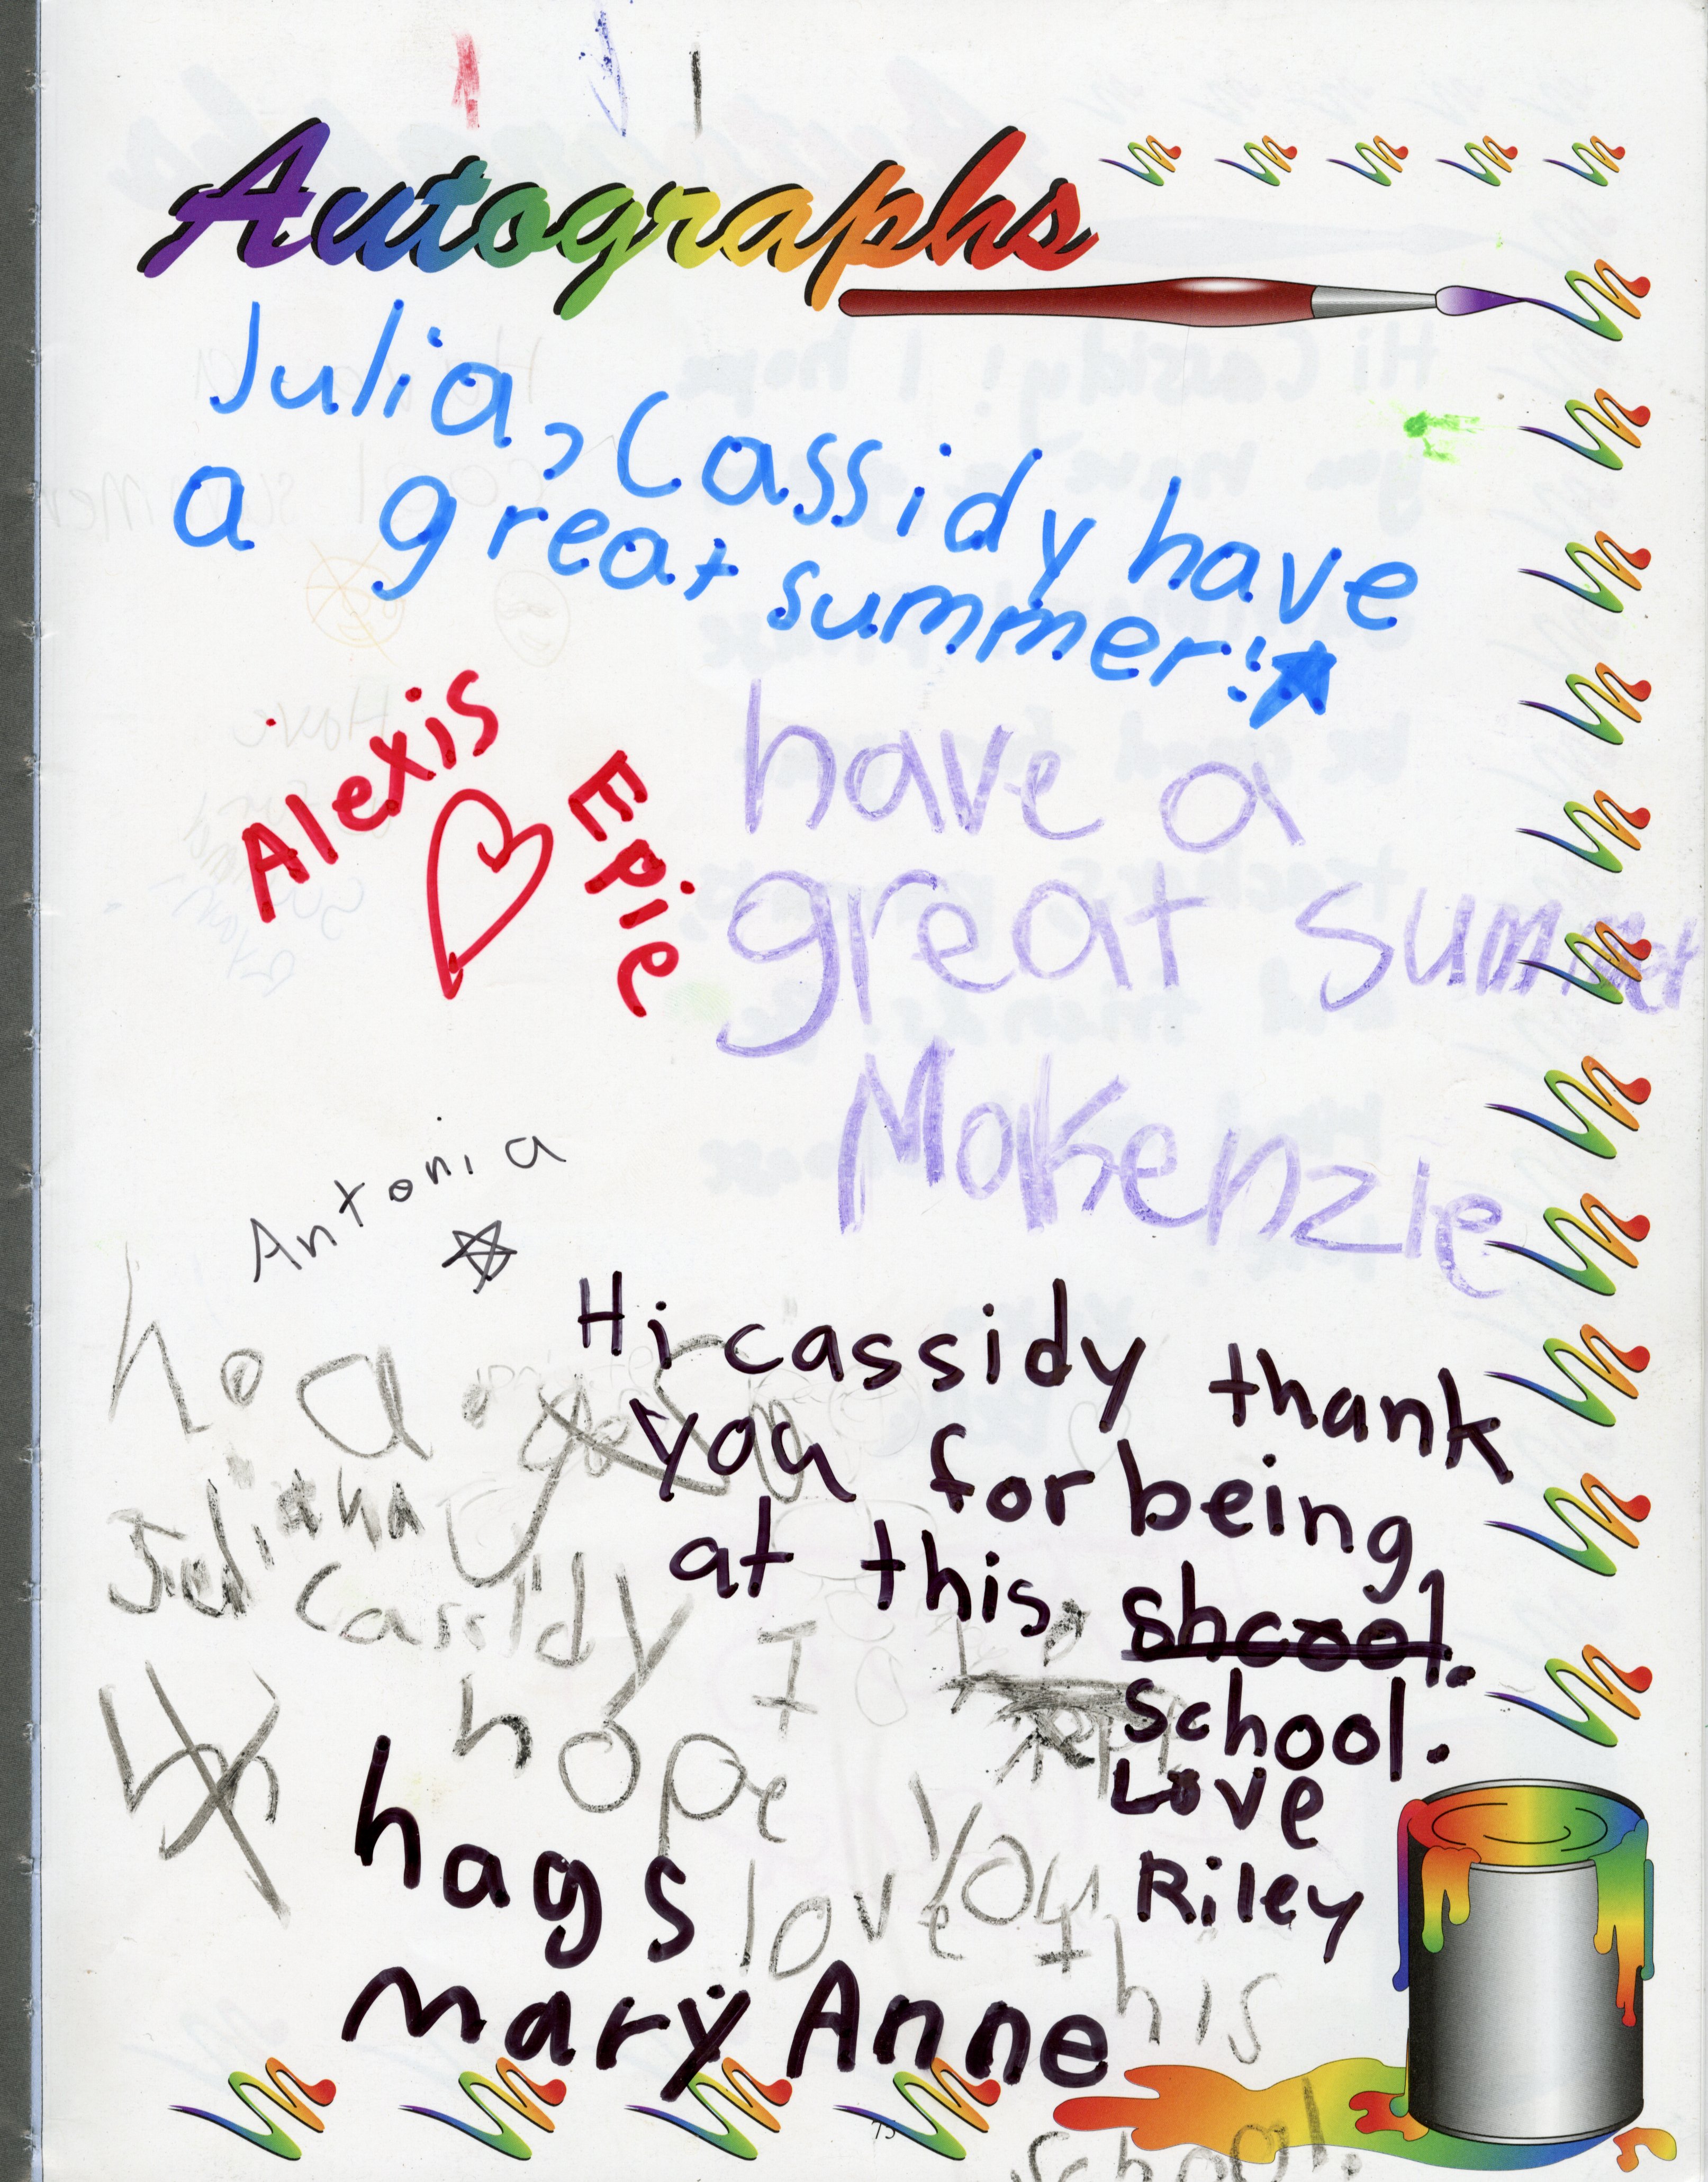 Autographs
Julia, Cassidy have
a great summer!
Alexis
Epie
have a
great summer
Makenzie
Antonia
Hi cassidy thank
you for being
at this shcool.
school.
Love
Riley
Juliana
Cassidy I
hope you
love this
school.
hags
mary Anne
75